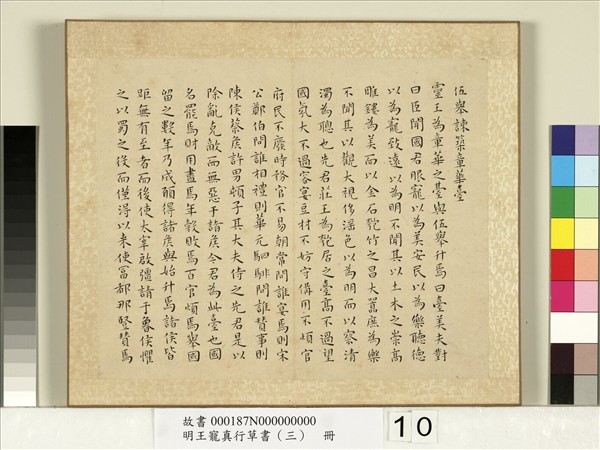 伍舉諫築章華臺
靈王為章華之臺與伍舉升焉曰臺美夫對
曰臣聞國君服寵以為美安民以為樂聽德
以為寵致遠以為明不聞其以土木之崇高
雕鏤為美而以金石匏竹之昌大囂庶為樂
不聞其以觀大視侈淫色以為明而以察清
濁為聰也先君莊王為匏居之臺高不過望
國氛大不過容宴豆材不妨守備用不煩官
府民不廢時務官不易朝常問誰宴焉則宋
公鄭伯問誰相禮則華元駟騑問誰贊事則
陳侯蔡侯許男頓子其大夫侍之先君是以
除亂克敵而無惡于諸侯今君為此臺也國
名罷焉財用盡焉年穀敗焉百官煩焉舉國
留之數年乃成願得諸侯與始升焉諸侯皆
距無有至者而後使太宰啟彊請于魯侯懼
之以蜀之役而僅得以来使富都那豎贊焉
故書 000187N000000000
明王寵真行草書(三) 冊
10